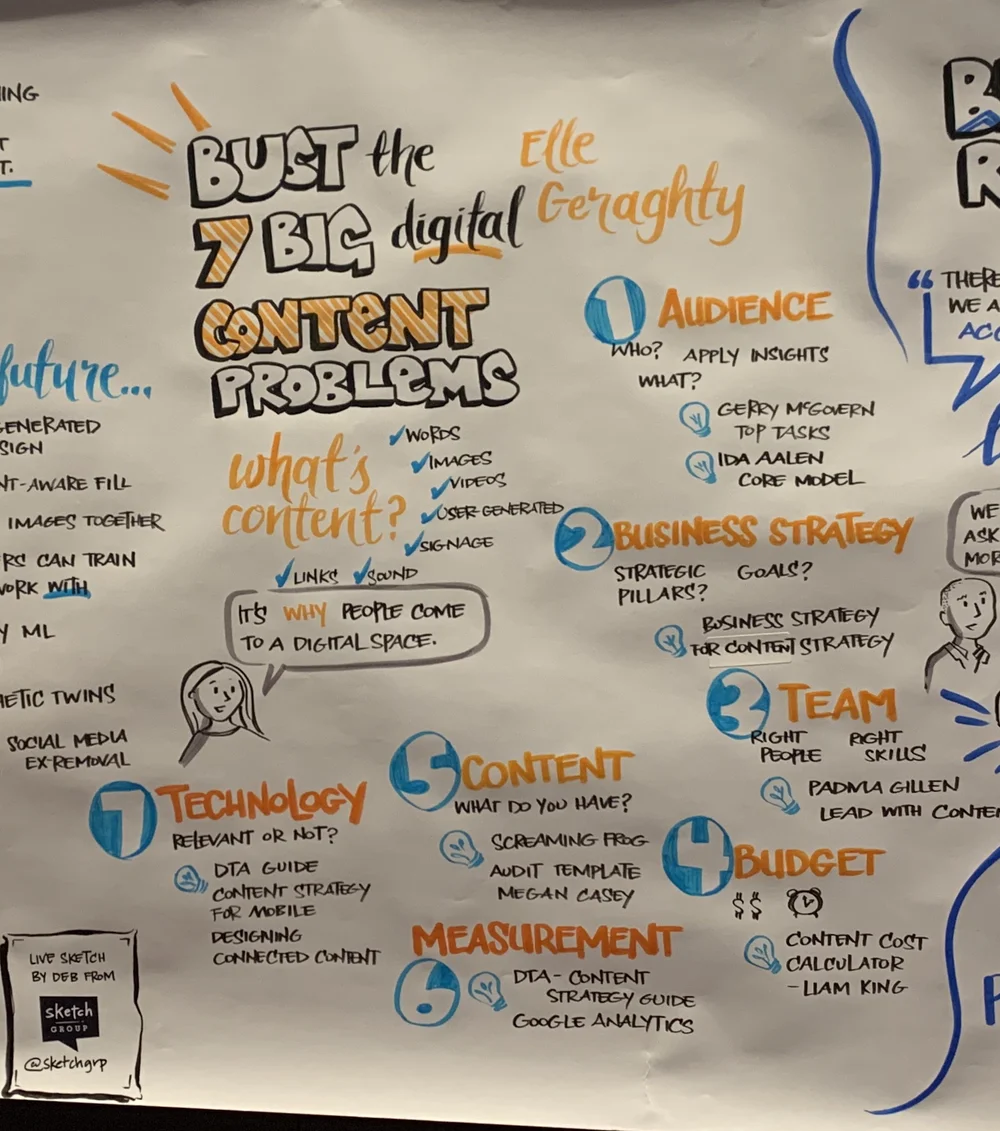 BUST the
7 BIG digital
CONTENT
PROBLEMS
Elle
Geraghty
what's
content?
WORDS
IMAGES
VIDEOS
USER-GENERATED
SIGNAGE
LINKS SOUND
IT'S WHY PEOPLE COME
TO A DIGITAL SPACE.
1 AUDIENCE
WHO? APPLY INSIGHTS
WHAT?
GERRY McGOVERN
TOP TASKS
IDA AALEN
CORE MODEL
2 BUSINESS STRATEGY
STRATEGIC GOALS?
PILLARS?
BUSINESS STRATEGY
FOR CONTENT STRATEGY
3 TEAM
RIGHT RIGHT
PEOPLE SKILLS
PADMA GILLEN
LEAD WITH CONTE
4 BUDGET
$$
CONTENT COST
CALCULATOR
- LIAM KING
5 CONTENT
WHAT DO YOU HAVE?
SCREAMING FROG
AUDIT TEMPLATE
MEGAN CASEY
MEASUREMENT
6 DTA - CONTENT
STRATEGY GUIDE
GOOGLE ANALYTICS
7 TECHNOLOGY
RELEVANT OR NOT?
DTA GUIDE
CONTENT STRATEGY
FOR MOBILE
DESIGNING
CONNECTED CONTENT
LIVE SKETCH
BY DEB FROM
sketch
GROUP
@sketchgrp
ING
T
T.
future...
GENERATED
SIGN
NT-AWARE FILL
IMAGES TOGETHER
RS CAN TRAIN
WORK WITH
Y ML
HETIC TWINS
SOCIAL MEDIA
EX-REMOVAL
B
R
"THERE
WE A
ACC
WE
ASK
MOR
P